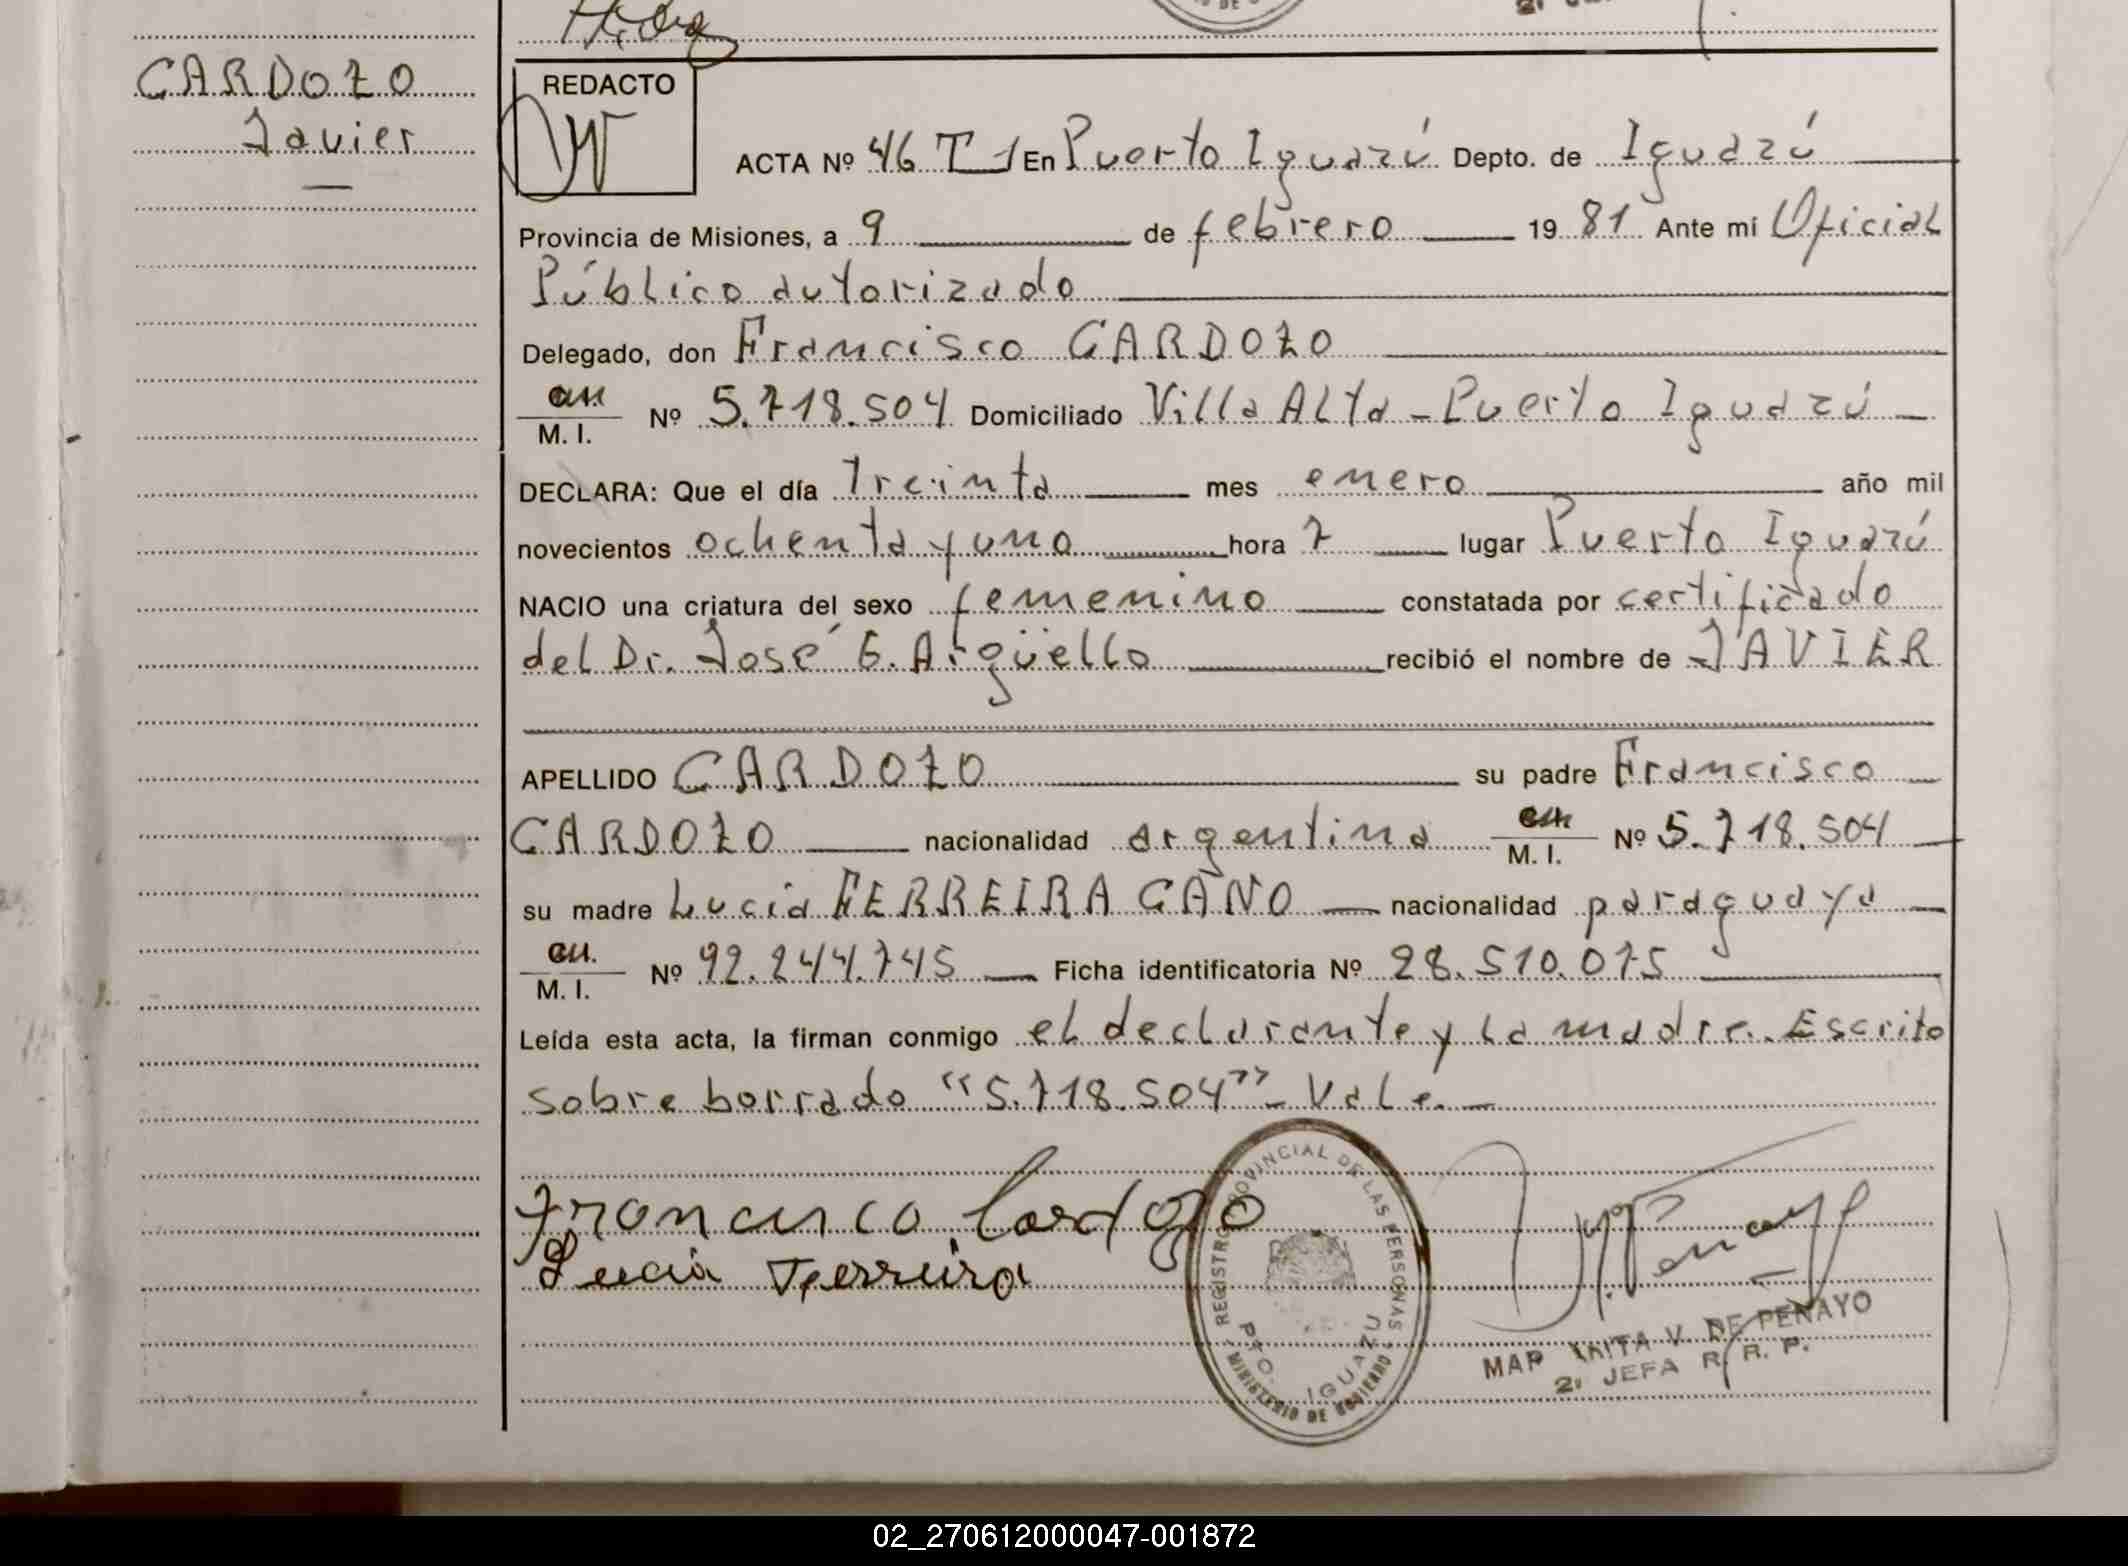 CARDOZO
Javier
REDACTO
ACTA Nº 46 T 1 En Puerto Iguazú Depto. de Iguazú
Provincia de Misiones, a 9 de febrero 19 81 Ante mi Oficial
Público autorizado
Delegado, don Francisco CARDOZO
M. I. Nº 5.718.504 Domiciliado Villa Alta - Puerto Iguazú
DECLARA: Que el día treinta mes enero año mil
novecientos ochenta y uno hora 7 lugar Puerto Iguazú
NACIO una criatura del sexo femenino constatada por certificado
del Dr. José G. Argüello recibió el nombre de JAVIER
APELLIDO CARDOZO su padre Francisco
CARDOZO nacionalidad argentina M. I. Nº 5.718.504
su madre Lucia FERREIRA CAÑO nacionalidad paraguaya
M. I. Nº 92.244.745 Ficha identificatoria Nº 28.510.075
Leída esta acta, la firman conmigo el declarante y la madre. Escrito
sobre borrado "5.718.504" - Vale. -
Francisco Cardozo
Lucia Ferreira
REGISTRO PROVINCIAL DE LAS PERSONAS
PTO. IGUAZU
MINISTERIO DE GOBIERNO
V. DE PENAYO
2. JEFA R. R. P.
02_270612000047-001872